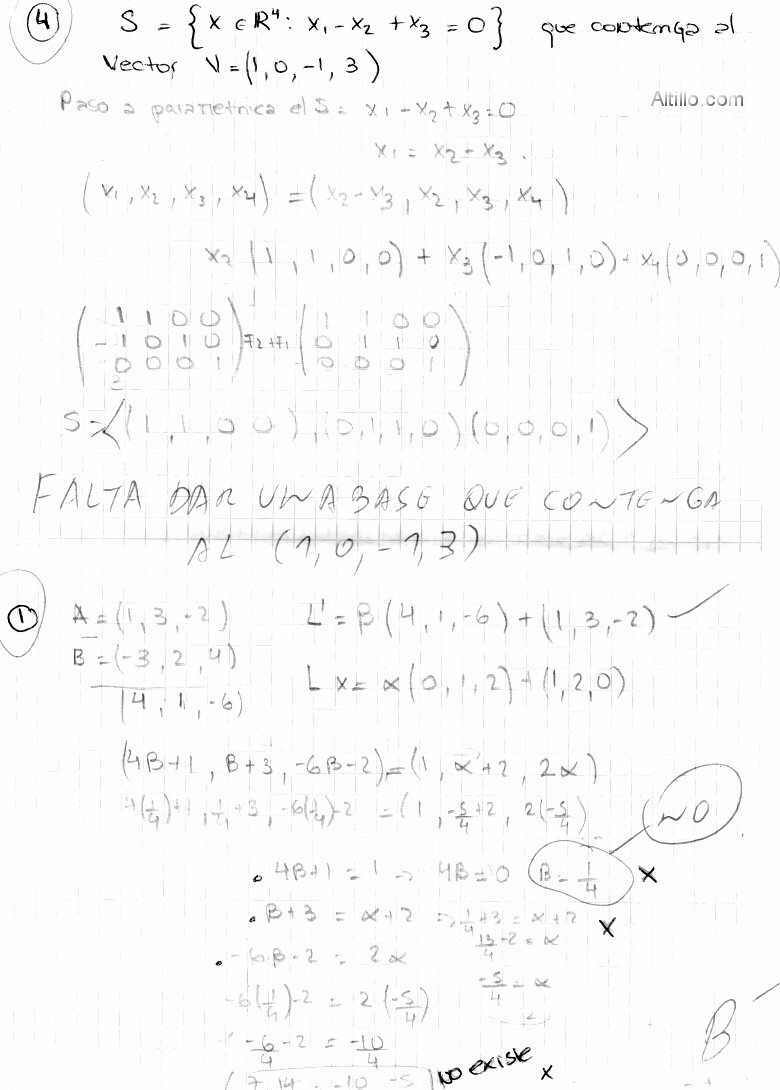 ④ S = { x ∈ ℝ⁴ : x₁ - x₂ + x₃ = 0 } que contenga al
Vector V = (1, 0, -1, 3)
Altillo.com
Paso a parametrica el S = x₁ - x₂ + x₃ = 0
x₁ = x₂ - x₃ .
(x₁, x₂, x₃, x₄) = (x₂ - x₃, x₂, x₃, x₄)
x₂ (1, 1, 0, 0) + x₃ (-1, 0, 1, 0) + x₄ (0, 0, 0, 1)
( 1 1 0 0 ) ( 1 1 0 0 )
( -1 0 1 0 ) F₂+F₁ ( 0 1 1 0 )
( 0 0 0 1 ) ( 0 0 0 1 )
S = <(1, 1, 0 0), (0, 1, 1, 0) (0, 0, 0, 1)>
FALTA DAR UNA BASE QUE CONTENGA
AL (1, 0, -1, 3)
① A = (1, 3, -2) L' = β (4, 1, -6) + (1, 3, -2) ✓
B = (-3, 2, 4)
(4, 1, -6) L x = α (0, 1, 2) + (1, 2, 0)
(4β+1, β+3, -6β-2) = (1, α+2, 2α)
4(1/4)+1, 1/4+3, -6(1/4)-2 = (1, -5/4+2, 2(-5/4)
NO
. 4β+1 = 1 → 4β=0 β = 1/4 X
. β+3 = α+2 ⇒ 1/4+3 = α+2 X
13/4-2 = α
. -6β-2 = 2α
-5/4 = α
-6(1/4)-2 = 2(-5/4)
-6/4 - 2 = -10/4
B-
No existe X